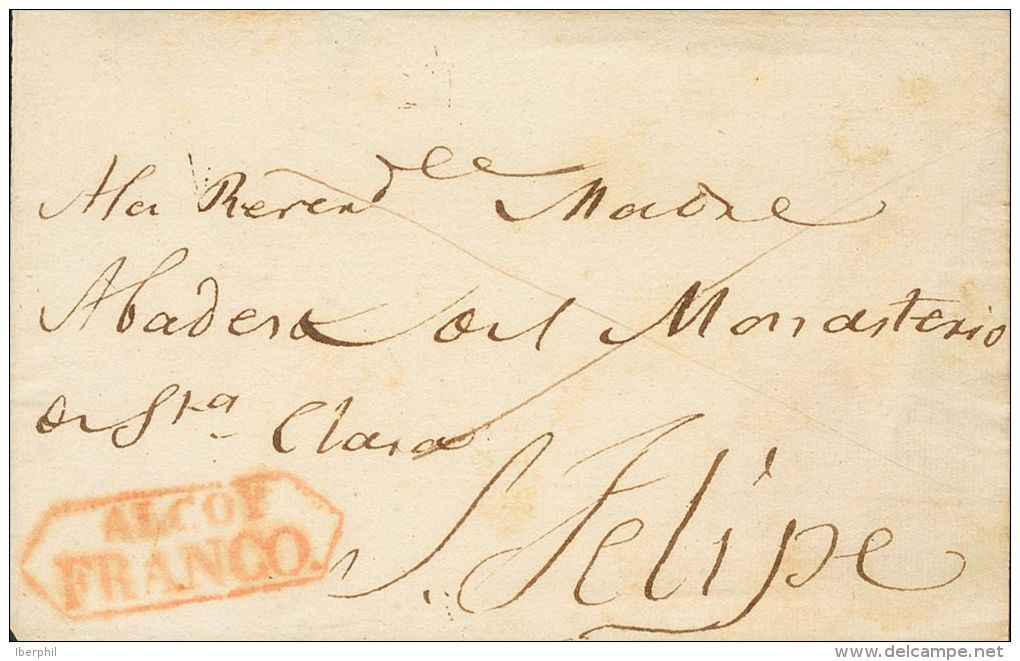 A la Reverend Madre
Abadesa del Monasterio
de Sta Clara
S. Felipe
ALCOY
FRANCO.
Iberphil
delcampe.net